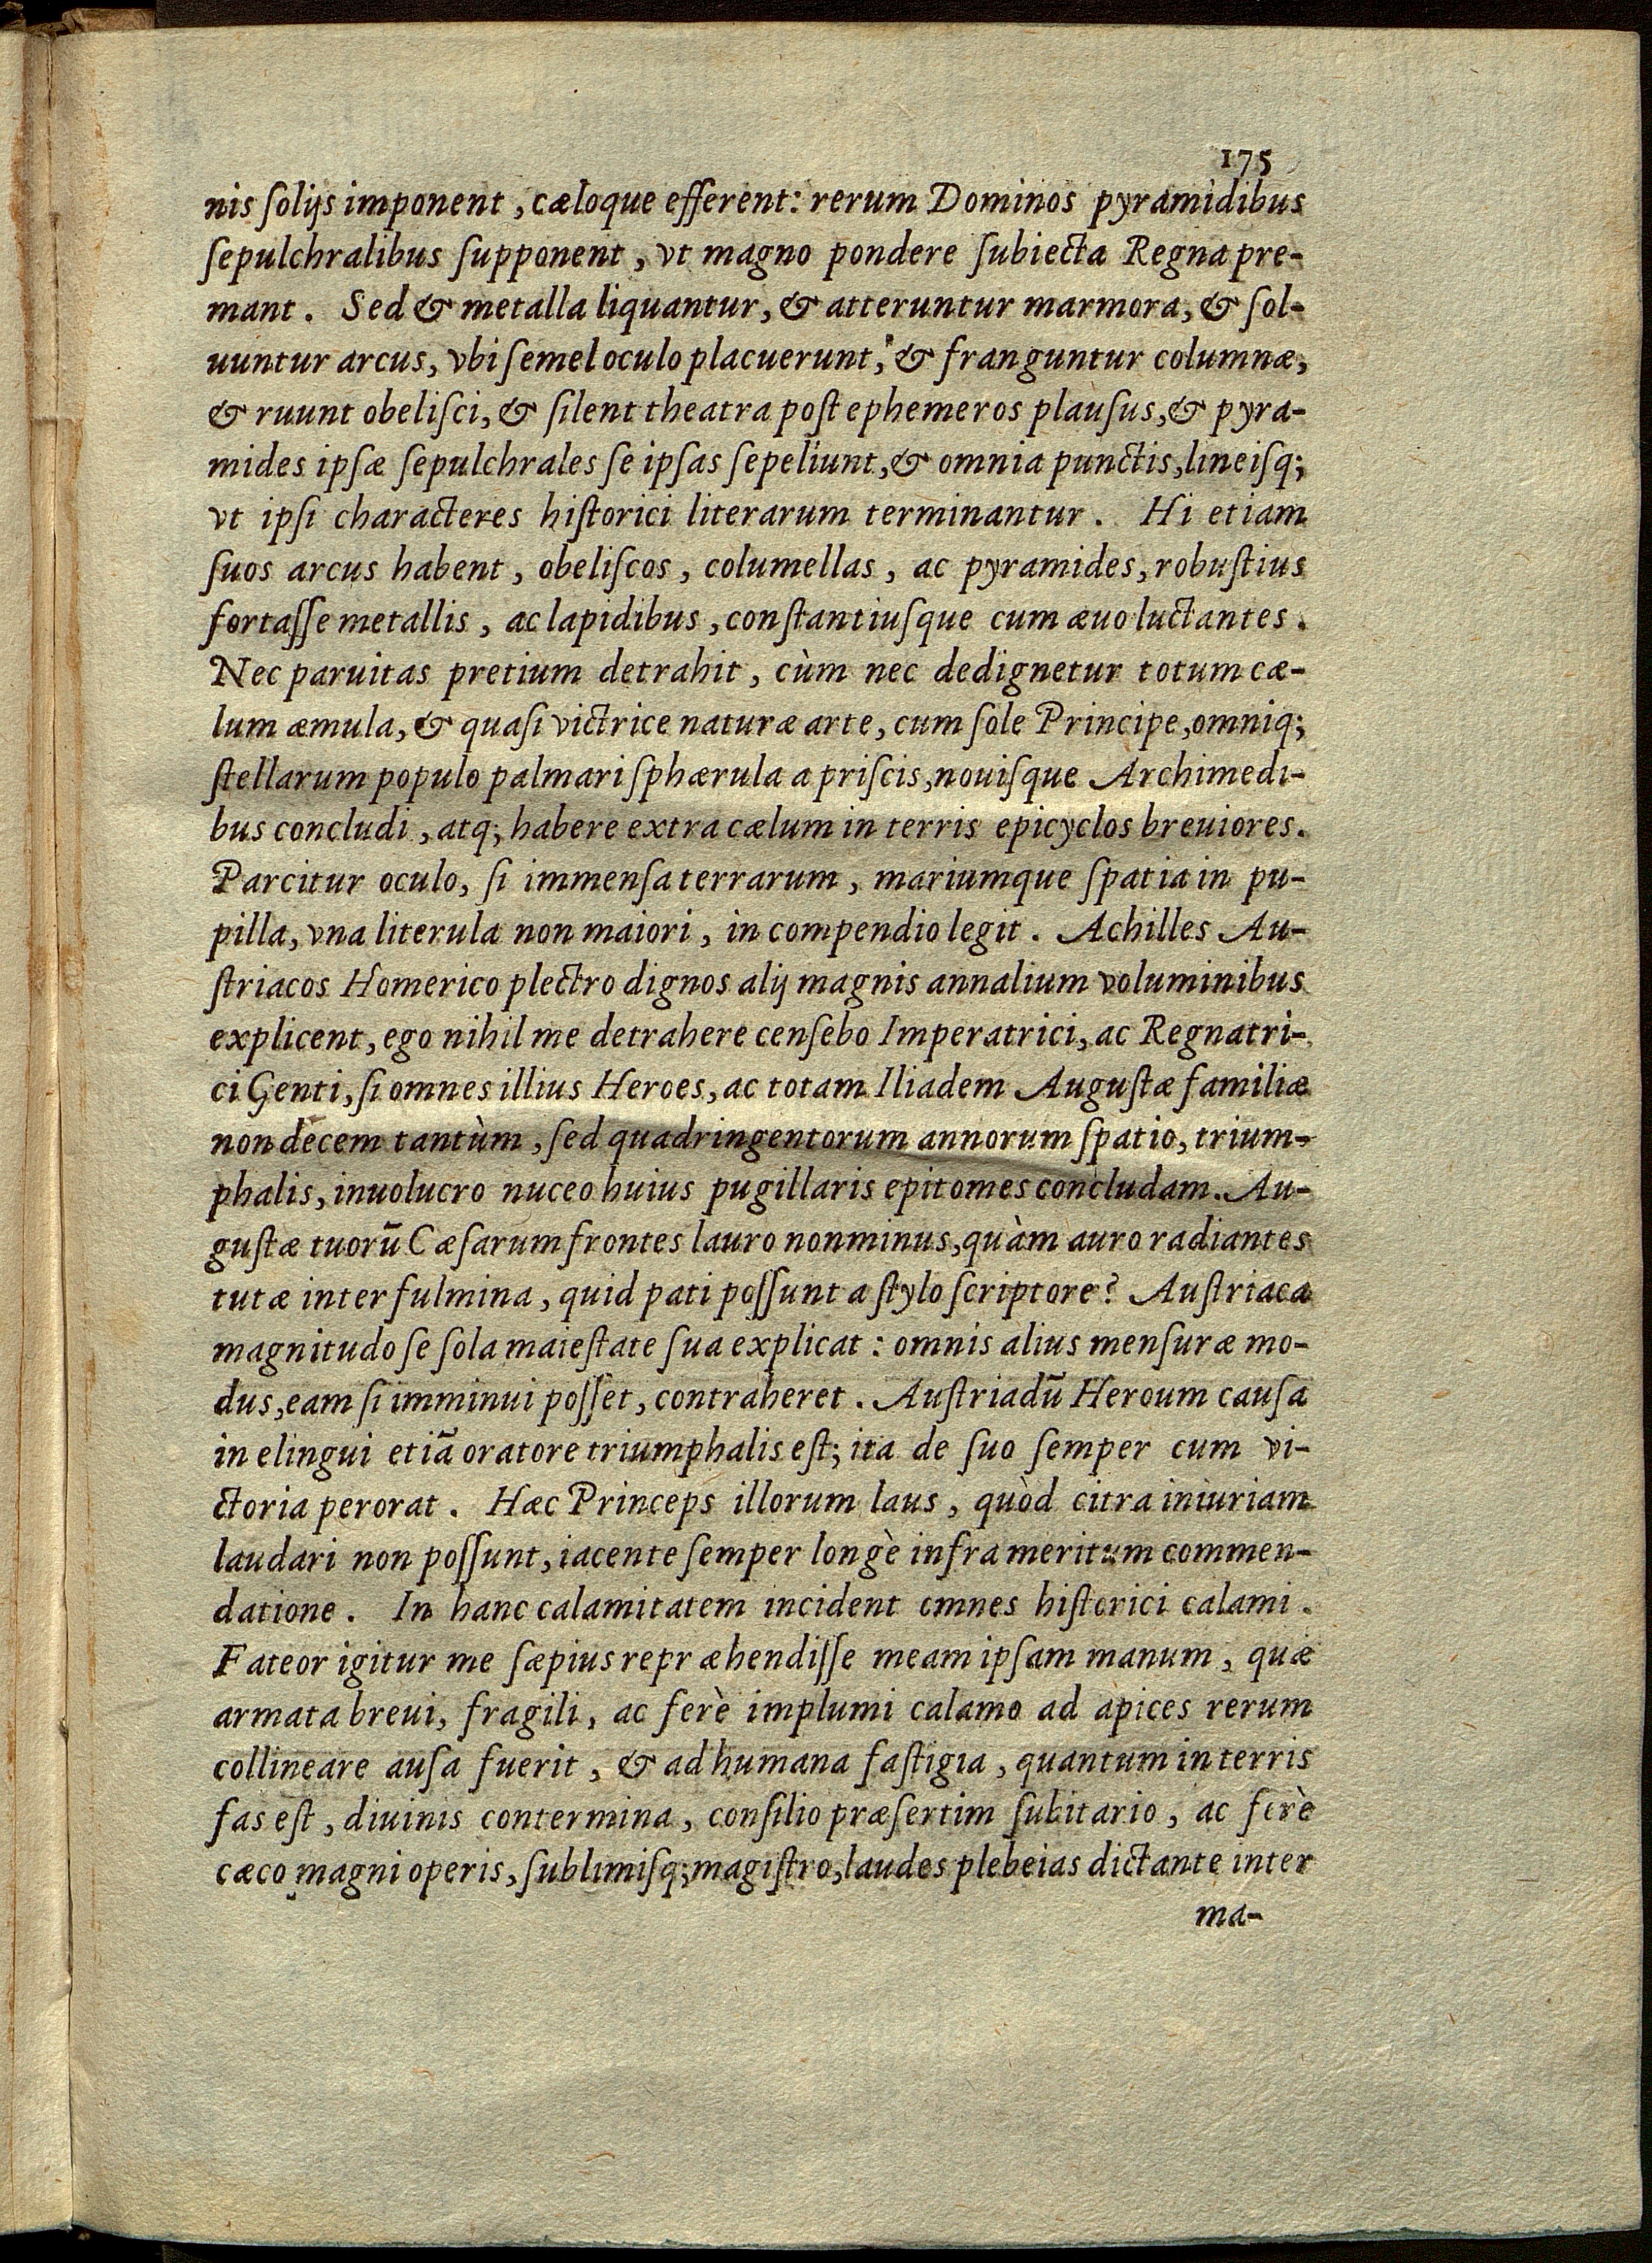 175
nis ſolijs imponent, cæloque efferent: rerum Dominos pyramidibus
ſepulchralibus ſupponent, vt magno pondere ſubiecta Regna pre-
mant. Sed & metalla liquantur, & atteruntur marmora, & ſol-
uuntur arcus, vbi ſemel oculo placuerunt, & franguntur columnæ,
& ruunt obeliſci, & ſilent theatra poſt ephemeros plauſus, & pyra-
mides ipſæ ſepulchrales ſe ipſas ſepeliunt, & omnia punctis, lineiſq;
vt ipſi characteres hiſtorici literarum terminantur. Hi etiam
ſuos arcus habent, obeliſcos, columellas, ac pyramides, robuſtius
fortaſſe metallis, ac lapidibus, conſtantiuſque cum æuo luctantes.
Nec paruitas pretium detrahit, cùm nec dedignetur totum cæ-
lum æmula, & quaſi victrice naturæ arte, cum ſole Principe, omniq;
ſtellarum populo palmari ſphærula a priſcis, nouiſque Archimedi-
bus concludi, atq; habere extra cælum in terris epicyclos breuiores.
Parcitur oculo, ſi immenſa terrarum, mariumque ſpatia in pu-
pilla, vna literula non maiori, in compendio legit. Achilles Au-
ſtriacos Homerico plectro dignos alij magnis annalium voluminibus
explicent, ego nihil me detrahere cenſebo Imperatrici, ac Regnatri-
ci Genti, ſi omnes illius Heroes, ac totam Iliadem Auguſtæ familiæ
non decem tantùm, ſed quadringentorum annorum ſpatio, trium-
phalis, inuolucro nuceo huius pugillaris epitomes concludam. Au-
guſtæ tuorū Cæſarum frontes lauro non minus, quàm auro radiantes
tutæ inter fulmina, quid pati poſſunt a ſtylo ſcriptore? Auſtriaca
magnitudo ſe ſola maieſtate ſua explicat: omnis alius menſuræ mo-
dus, eam ſi imminui poſſet, contraheret. Auſtriadū Heroum cauſa
in elingui etiā oratore triumphalis eſt; ita de ſuo ſemper cum vi-
ctoria perorat. Hæc Princeps illorum laus, quòd citra iniuriam
laudari non poſſunt, iacente ſemper longè infra meritum commen-
datione. In hanc calamitatem incident omnes hiſtorici calami.
Fateor igitur me ſæpius repræhendiſſe meam ipſam manum, quæ
armata breui, fragili, ac ferè implumi calamo ad apices rerum
collineare auſa fuerit, & ad humana faſtigia, quantum in terris
fas eſt, diuinis contermina, conſilio præſertim ſubitario, ac ferè
cæco magni operis, ſublimiſq; magiſtro, laudes plebeias dictante inter
ma-